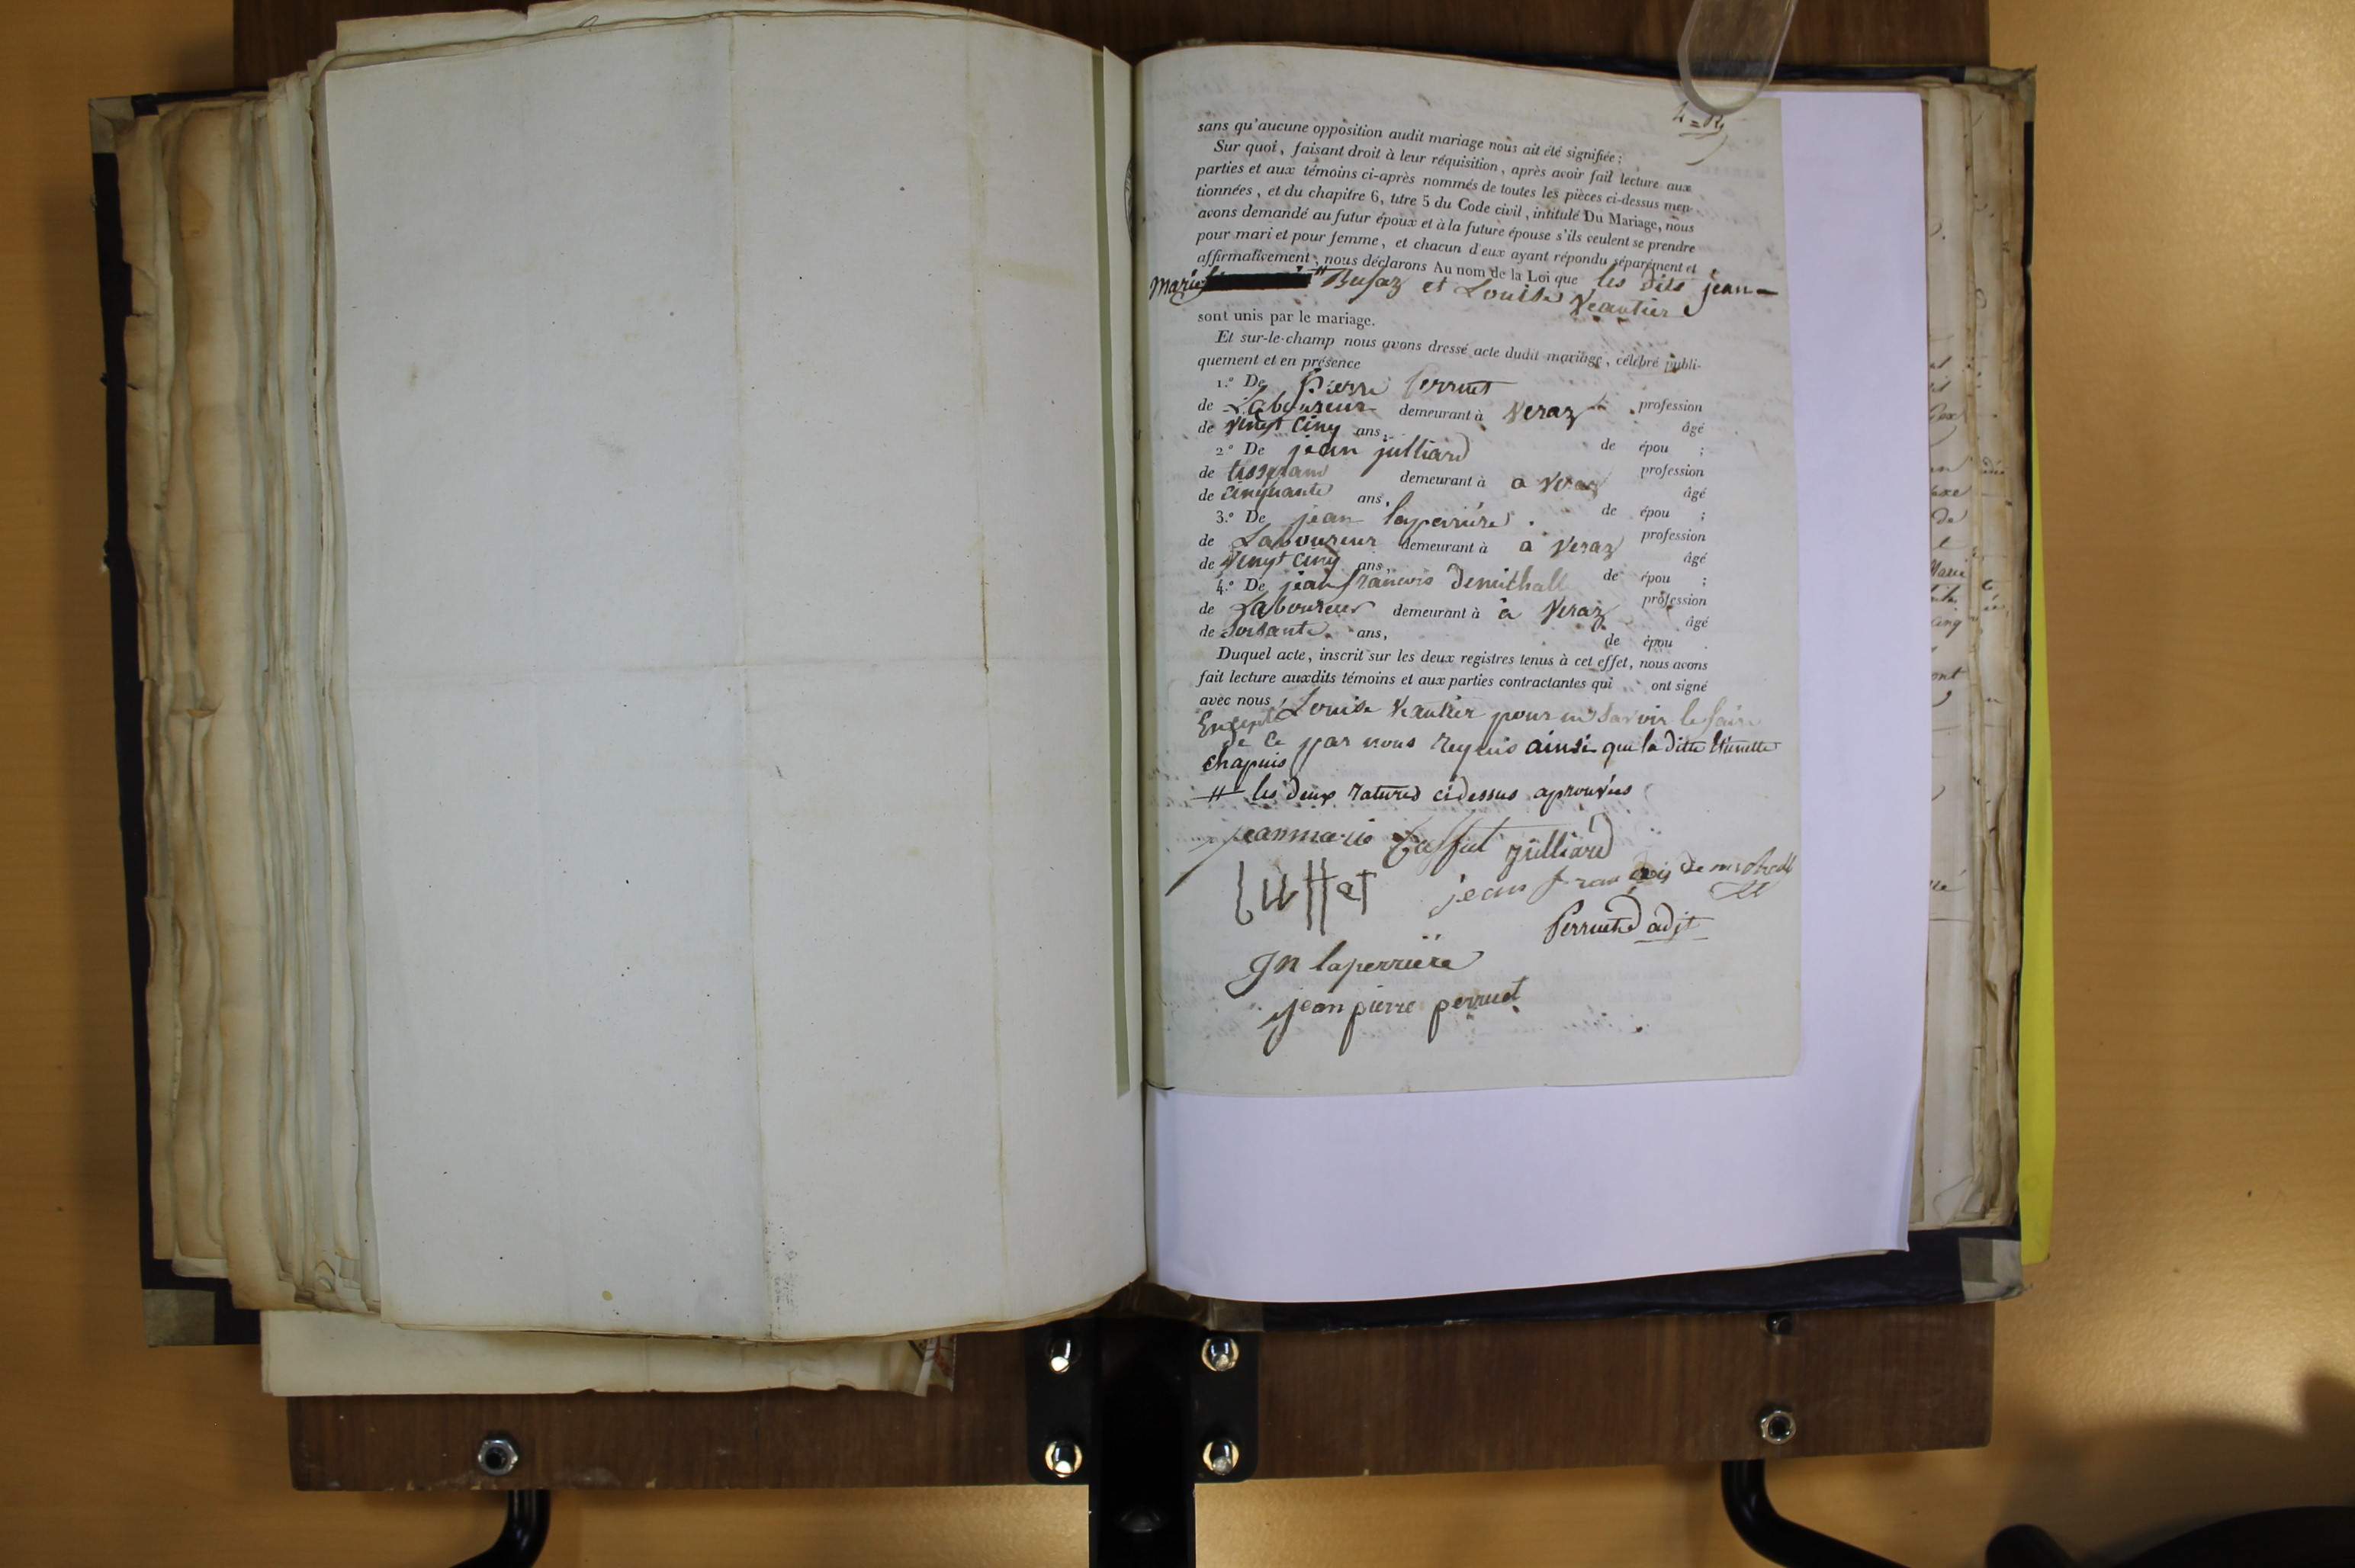 sans qu'aucune opposition audit mariage nous ait été signifiée ;
Sur quoi, faisant droit à leur réquisition, après avoir fait lecture aux
parties et aux témoins ci-après nommés de toutes les pièces ci-dessus men-
tionnées, et du chapitre 6, titre 5 du Code civil, intitulé Du Mariage, nous
avons demandé au futur époux et à la future épouse s'ils veulent se prendre
pour mari et pour femme, et chacun d'eux ayant répondu séparément et
affirmativement, nous déclarons Au nom de la Loi que les dits jean-
marie et Louise Veautier
sont unis par le mariage.
Et sur-le-champ nous avons dressé acte dudit mariage, célébré publi-
quement et en présence
1.º De pierre perruet profession
de Laboureur demeurant à Veraz âgé
de vingt cinq ans, de épou ;
2º De jean julliard profession
de tisseran demeurant à a Veraz âgé
de cinquante ans, de épou ;
3.º De jean laperrière profession
de Laboureur demeurant à a Veraz âgé
de vingt cinq ans, de épou ;
4.º De jean francois profession
de Laboureur demeurant à a Veraz âgé
de soisante ans, de épou .
Duquel acte, inscrit sur les deux registres tenus à cet effet, nous avons
fait lecture auxdits témoins et aux parties contractantes qui ont signé
avec nous
Excepté Louise Veautier pour ne savoir le faire
de ce par nous requis ainsi que la ditte
chapuis
les deux ratures cidessus aprouvées
jeanmarie julliard
jean francois
perruet adjt
Jn laperriere
jean pierre perruet